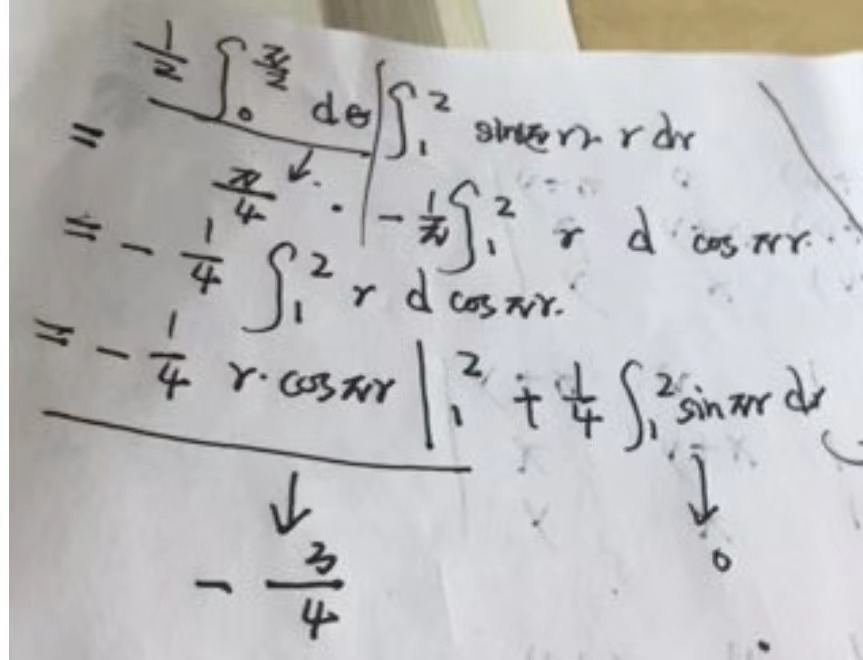 1/2 ∫₀^{π/2} dθ | ∫₁² sin(πr) · r dr
= π/4 · - 1/π ∫₁² r d cos πr.
= - 1/4 ∫₁² r d cos πr.
= - 1/4 r · cos πr |₁² + 1/4 ∫₁² sin πr dr
↓ ↓
- 3/4 0